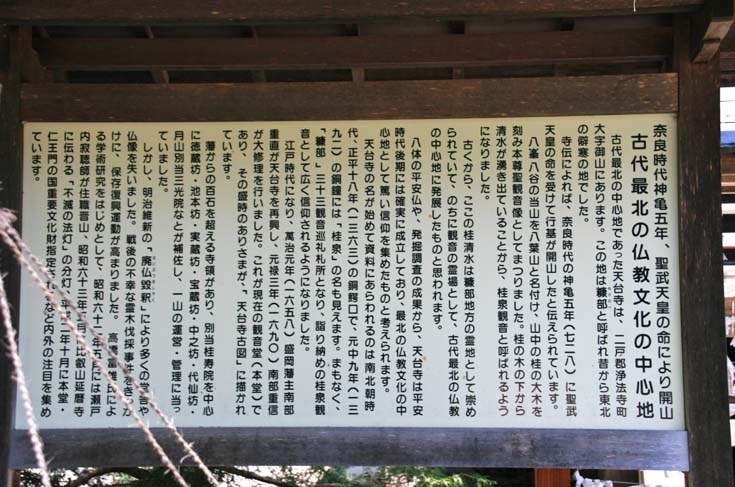 奈良時代神亀五年、聖武天皇の命により開山
古代最北の仏教文化の中心地
古代最北の中心地であった天台寺は、二戸郡浄法寺町
大字御山にあります。この地は糠部と呼ばれ昔から東北
の僻寒の地でした。
寺伝によれば、奈良時代の神亀五年(七二八)に聖武
天皇の命を受けて行基が開山したと伝えられています。
八峯八谷の当山を八葉山と名付け、山中の桂の大木を
刻み本尊聖観音像としてまつりました。桂の木の下から
清水が湧き出ていることから、桂泉観音と呼ばれるよう
になりました。
古くから、ここの桂清水は糠部地方の霊地として崇め
られていて、のちに観音の霊場として、古代最北の仏教
の中心地に発展したものと思われます。
八体の平安仏や、発掘調査の成果から、天台寺は平安
時代後期には確実に成立しており、最北の仏教文化の中
心地として篤い信仰を集めたものと考えられます。
天台寺の名が始めて資料にあらわれるのは南北朝時
代、正平十八年(一三六三)の銅鰐口で、元中九年(一三
九二)の銅鐘には「桂泉」の名も見えます。まもなく、
「糠部」三十三観音巡礼札所となり、詣り納めの桂泉観
音として広く信仰されるようになりました。
江戸時代になり、萬治元年(一六五八)盛岡藩主南部
重直が天台寺を再興し、元禄三年(一六九〇)南部重信
が大修理を行いました。これが現在の観音堂(本堂)で
あり、その盛時のありさまが、「天台寺古図」に描かれ
ています。
藩からの百石を超える寺領があり、別当桂寿院を中心
に徳蔵坊・池本坊・実蔵坊・宝蔵坊・中之坊・代仙坊・
月山別当三光院などが補佐し、一山の運営・管理に当っ
ていました。
しかし、明治維新の「廃仏毀釈」により多くの堂舎や
仏像を失いました。戦後の不幸な霊木伐採事件をきっか
けに、保存復興運動が高まりました。高橋富雄氏によ
る学術研究をはじめとして、昭和六十二年五月には瀬戸
内寂聴師が住職晋山、昭和六十三年 月 比叡山延暦寺
に伝わる「不滅の法灯」の分灯、平成二年十月に本堂・
仁王門の国重要文化財指定されるなど内外の注目を集め
ています。